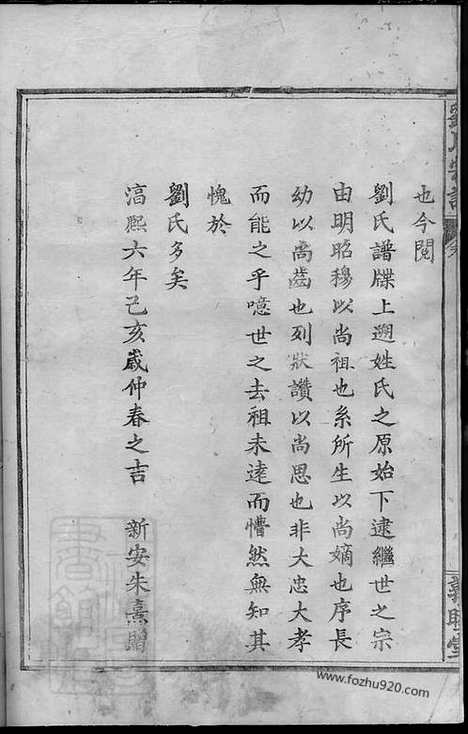 也今閱
劉氏譜牒上遡姓氏之原始下逮繼世之宗
由明昭穆以尚祖也系所生以尚嫡也序長
幼以尚齒也列狀讚以尚思也非大忠大孝
而能之乎噫世之去祖未遠而懵然無知其
愧於
劉氏多矣
淳熈六年己亥歲仲春之吉 新安朱熹贈
www.fozhu920.com